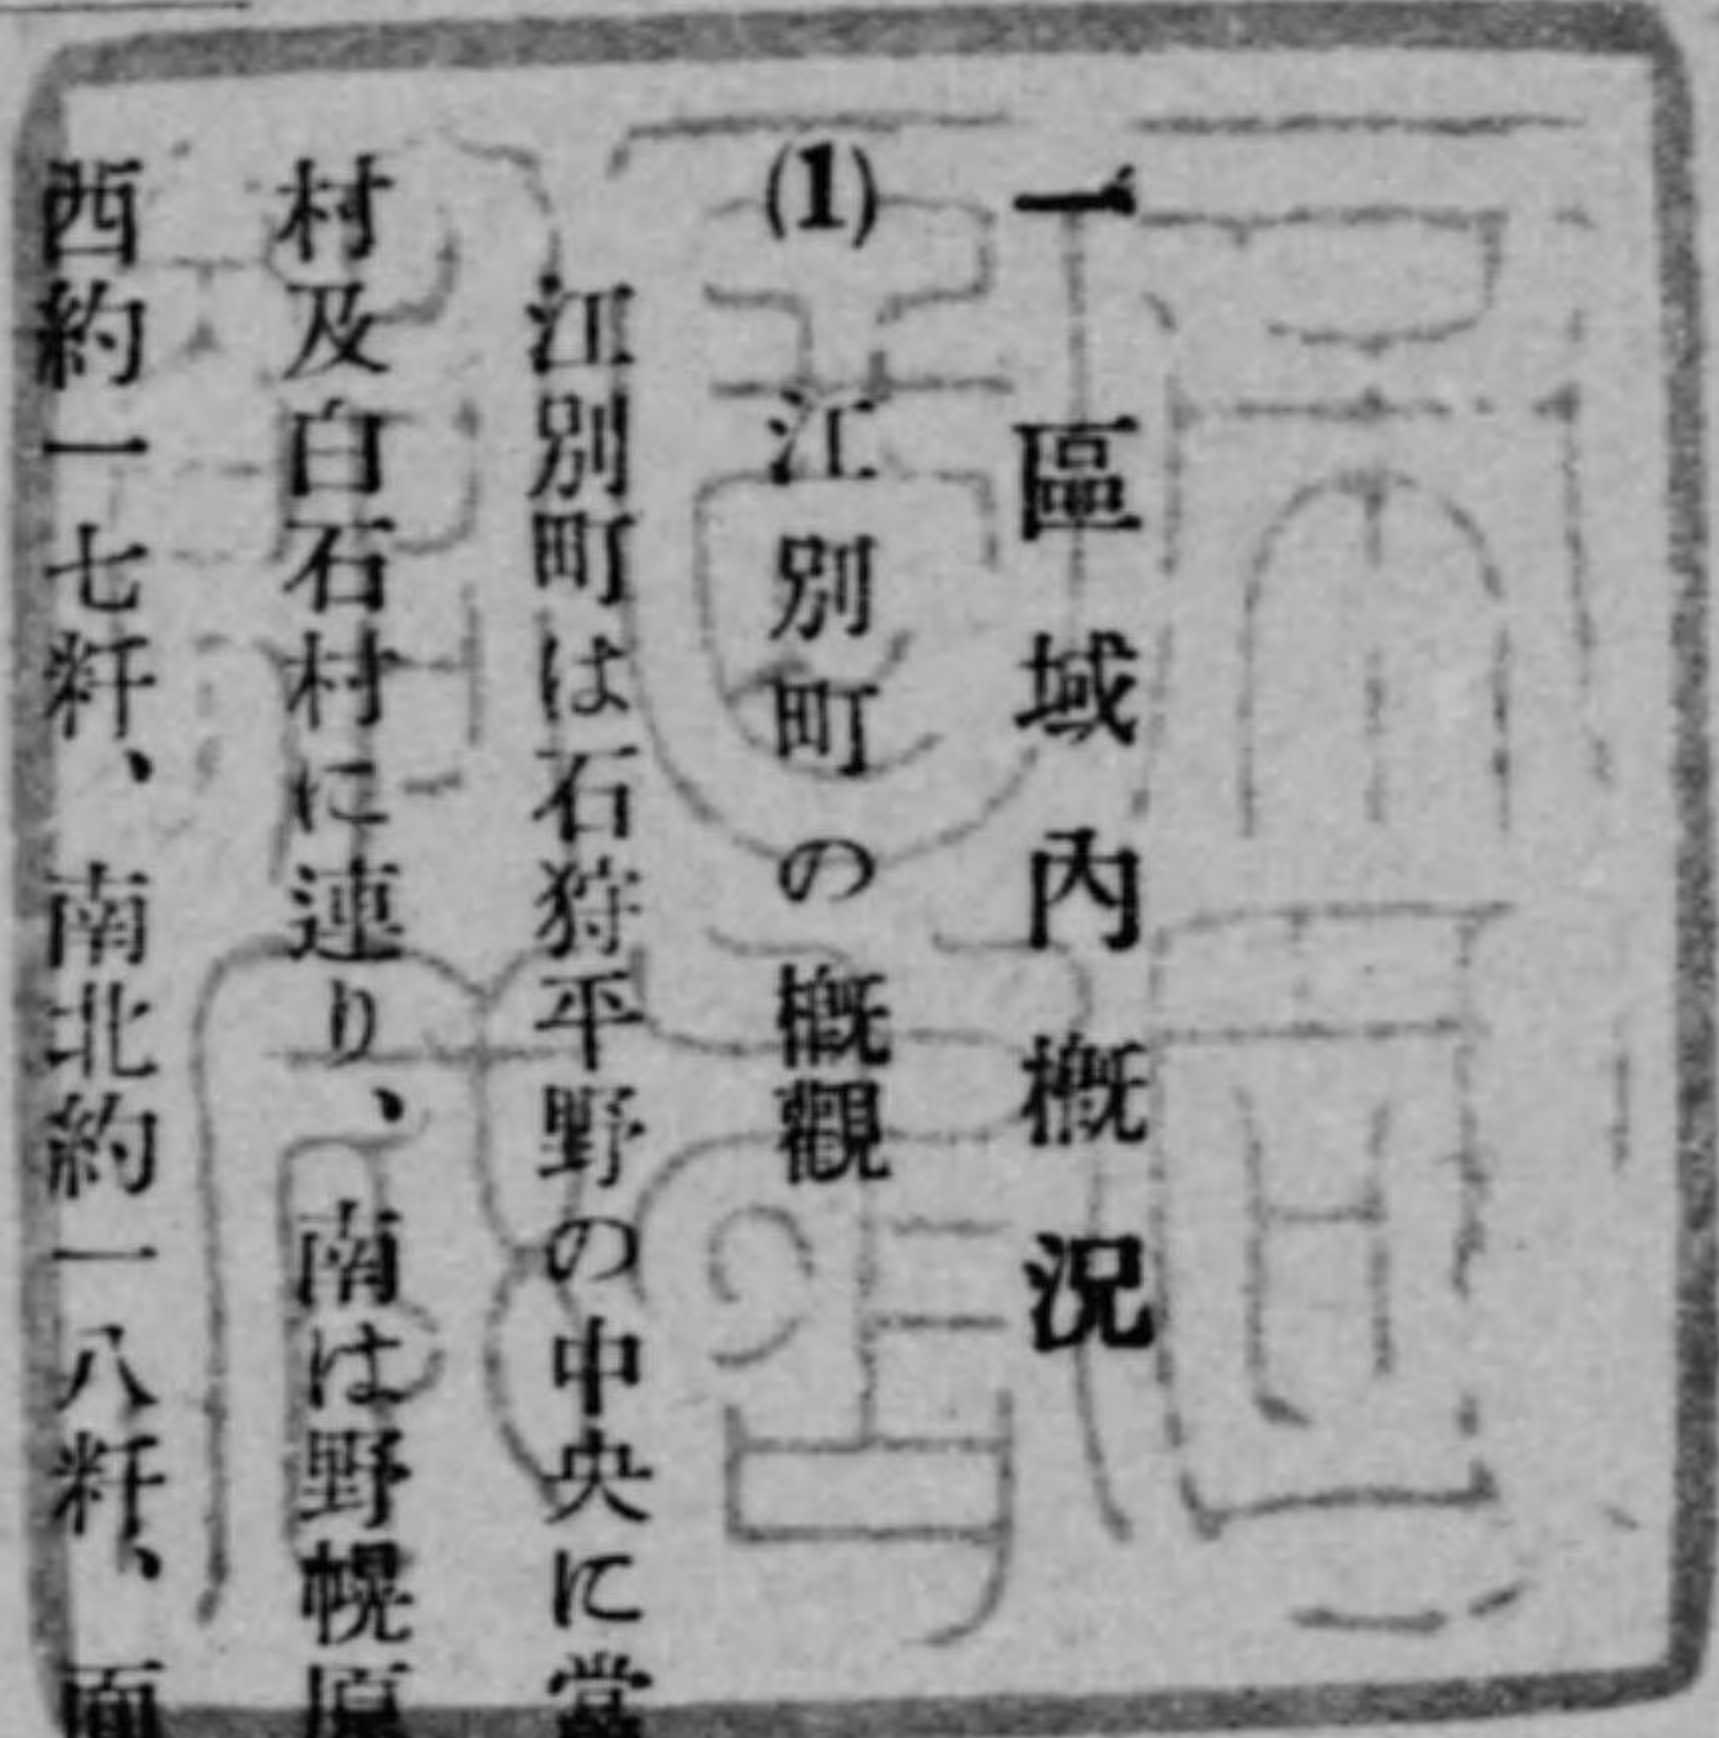 一 區域內概況
(1) 江別町の概觀
江別町は石狩平野の中央に當
村及白石村に連り、南は野幌原
西約一七粁、南北約一八粁、面